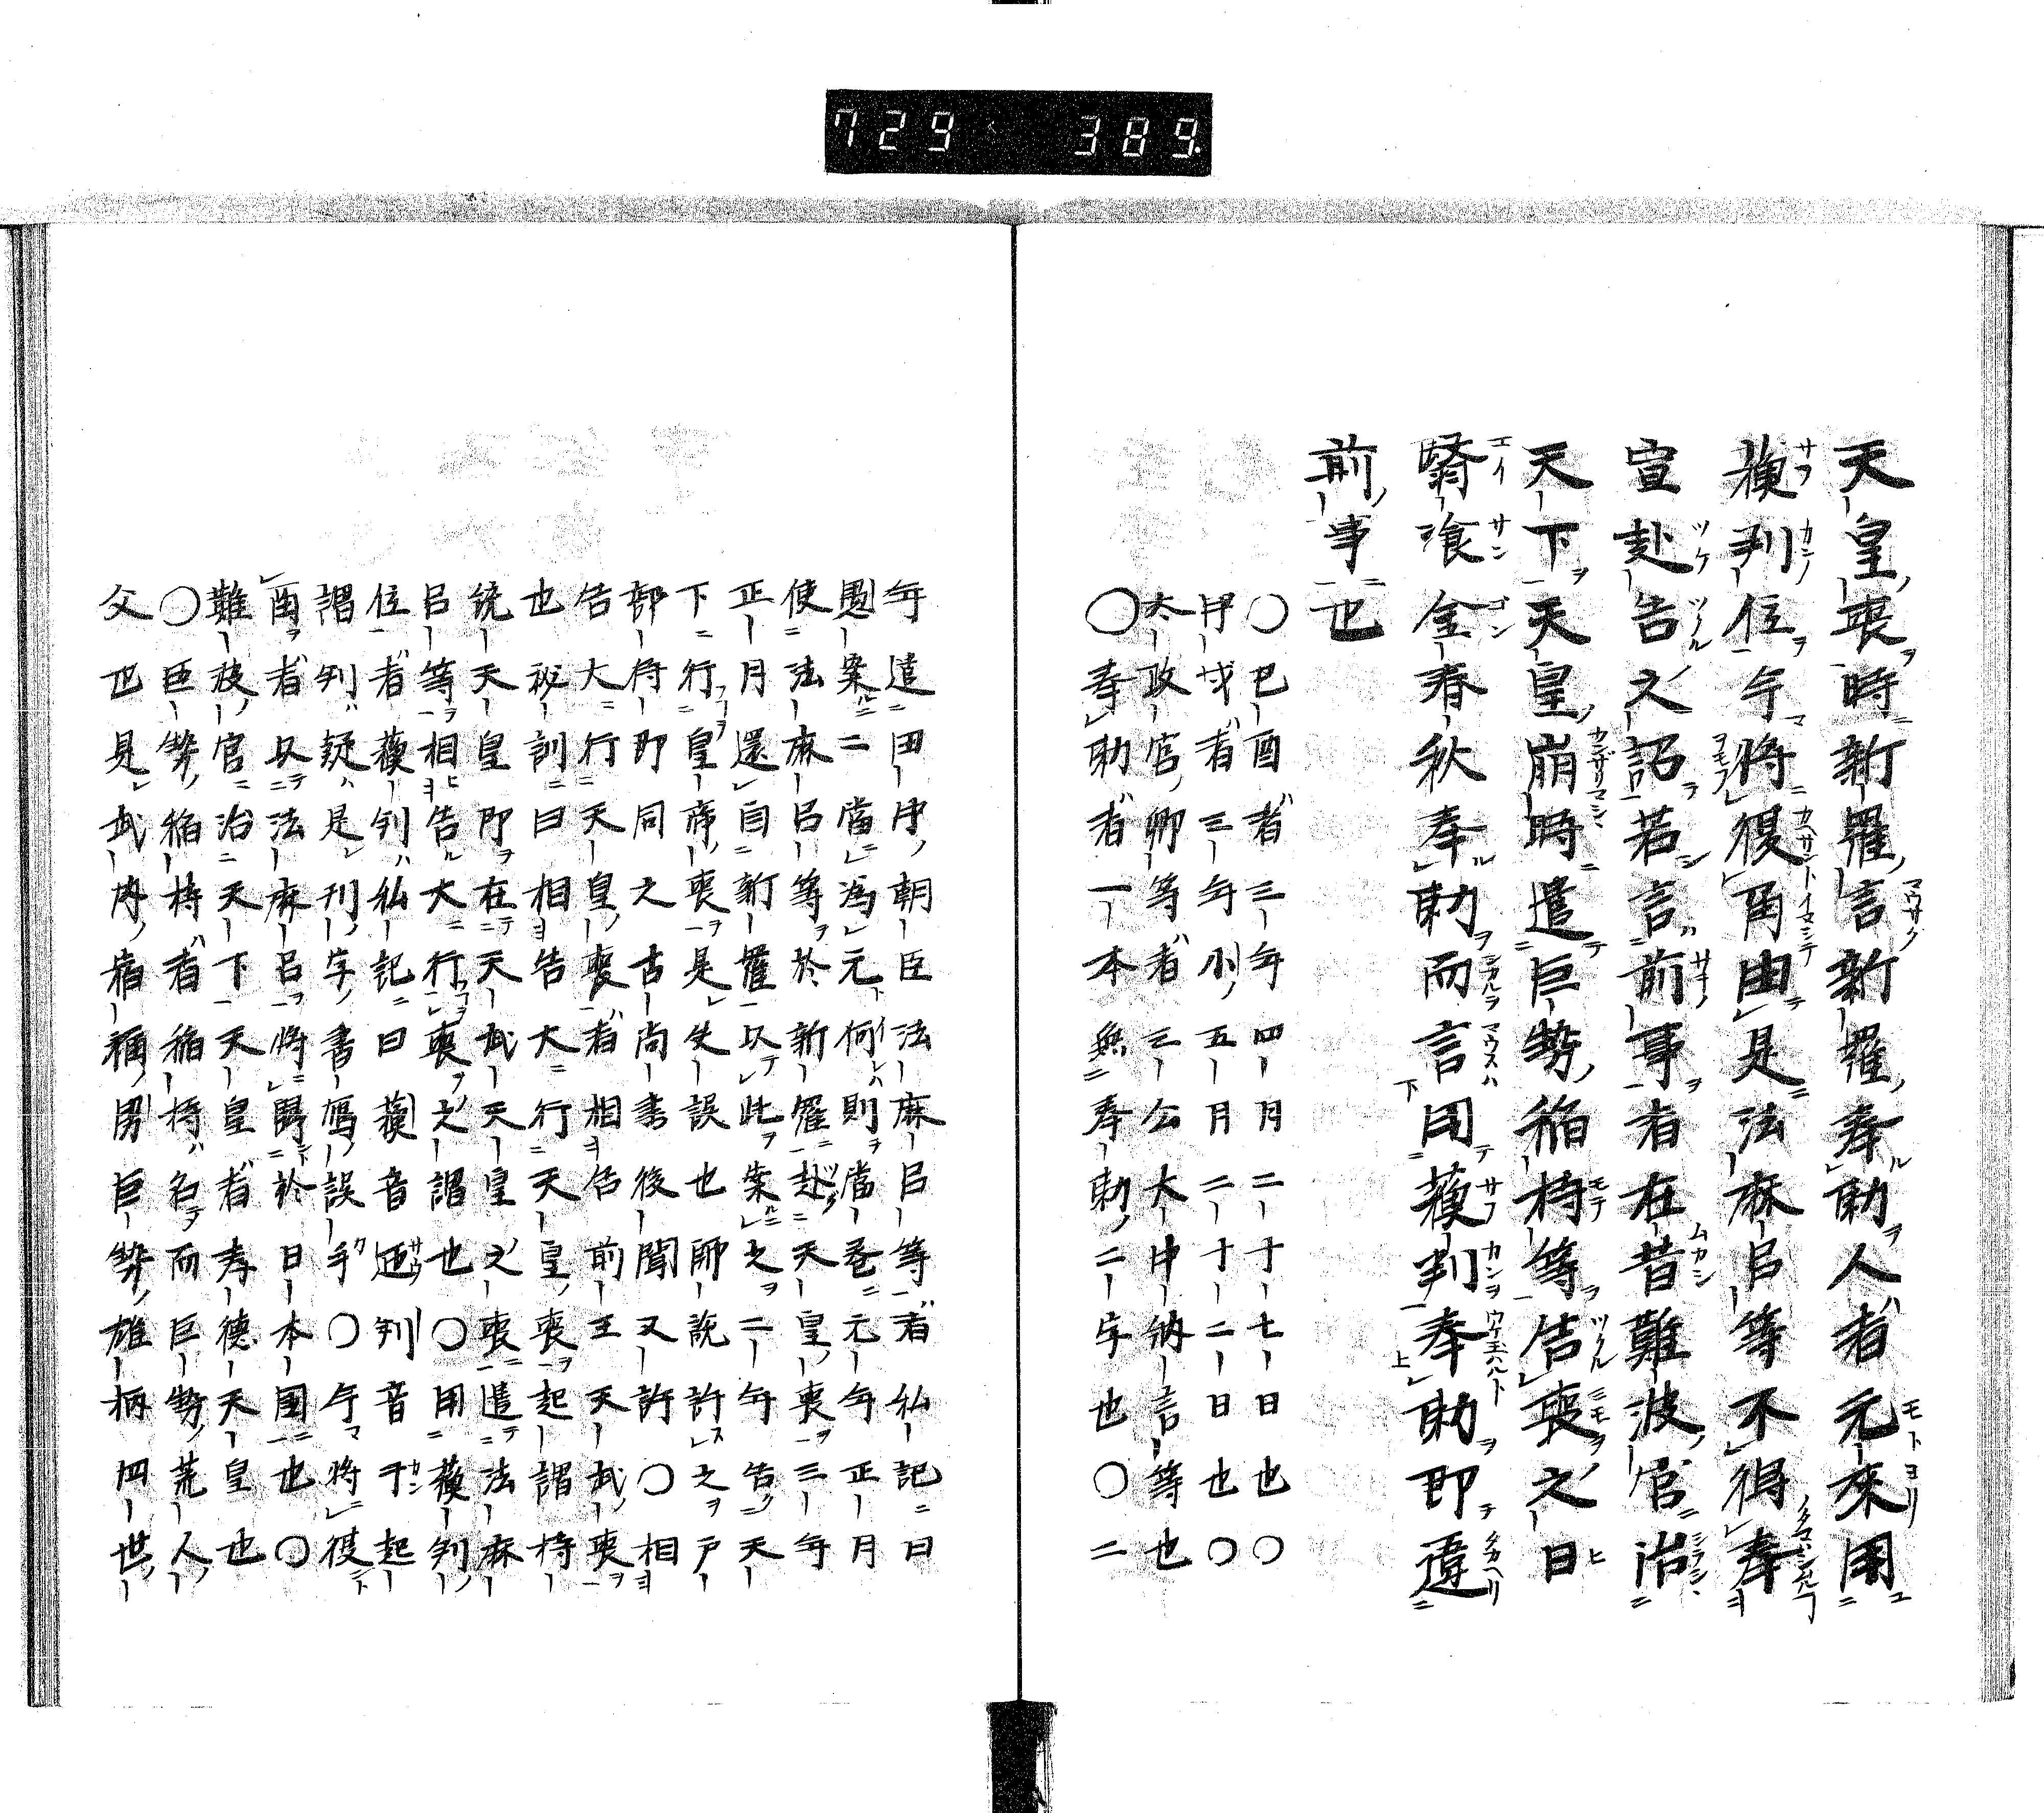 729 389
天皇喪時新羅言新羅奉勅人者元来用
蘓判位今將復甬由是法麻呂等不得奉
宣赴告之詔若言前事者在昔難波宮治
天下天皇崩時遣巨勢稲持等告喪之日
翳飡金春秋奉勅而言用蘓判奉勅即違
前事也
〇巳酉者三年四月二十七日也〇
甲戌者三年小五月二十二日也〇
太政官卿等者三公大中納言等也
〇奉勅者一本無奉勅二字也〇二
年遣田中朝臣法麻呂等者私記曰
愚案二當為元何則當巻元年正月
使法麻呂等於新羅赴天皇喪三年
正月還自新羅以此案之二年告天
下行皇帝喪是失誤也師説許之戸
部侍郎同之古尚書後聞又許〇相
告大行天皇喪者相告前王天武喪
也秘訓曰相告大行天皇喪起謂持
統天皇即在天武天皇之喪遣法麻
呂等相告大行喪之謂也〇用蘓判
位者蘓判私記曰蘓音迊判音干起
謂判疑是刊字書寫誤乎〇今將復
甬者以法麻呂將歸於日本國也〇
難波宮治天下天皇者孝德天皇也
〇巨勢稲持者稲持名而巨勢荒人
父也是武内宿祢男巨勢雄柄四世